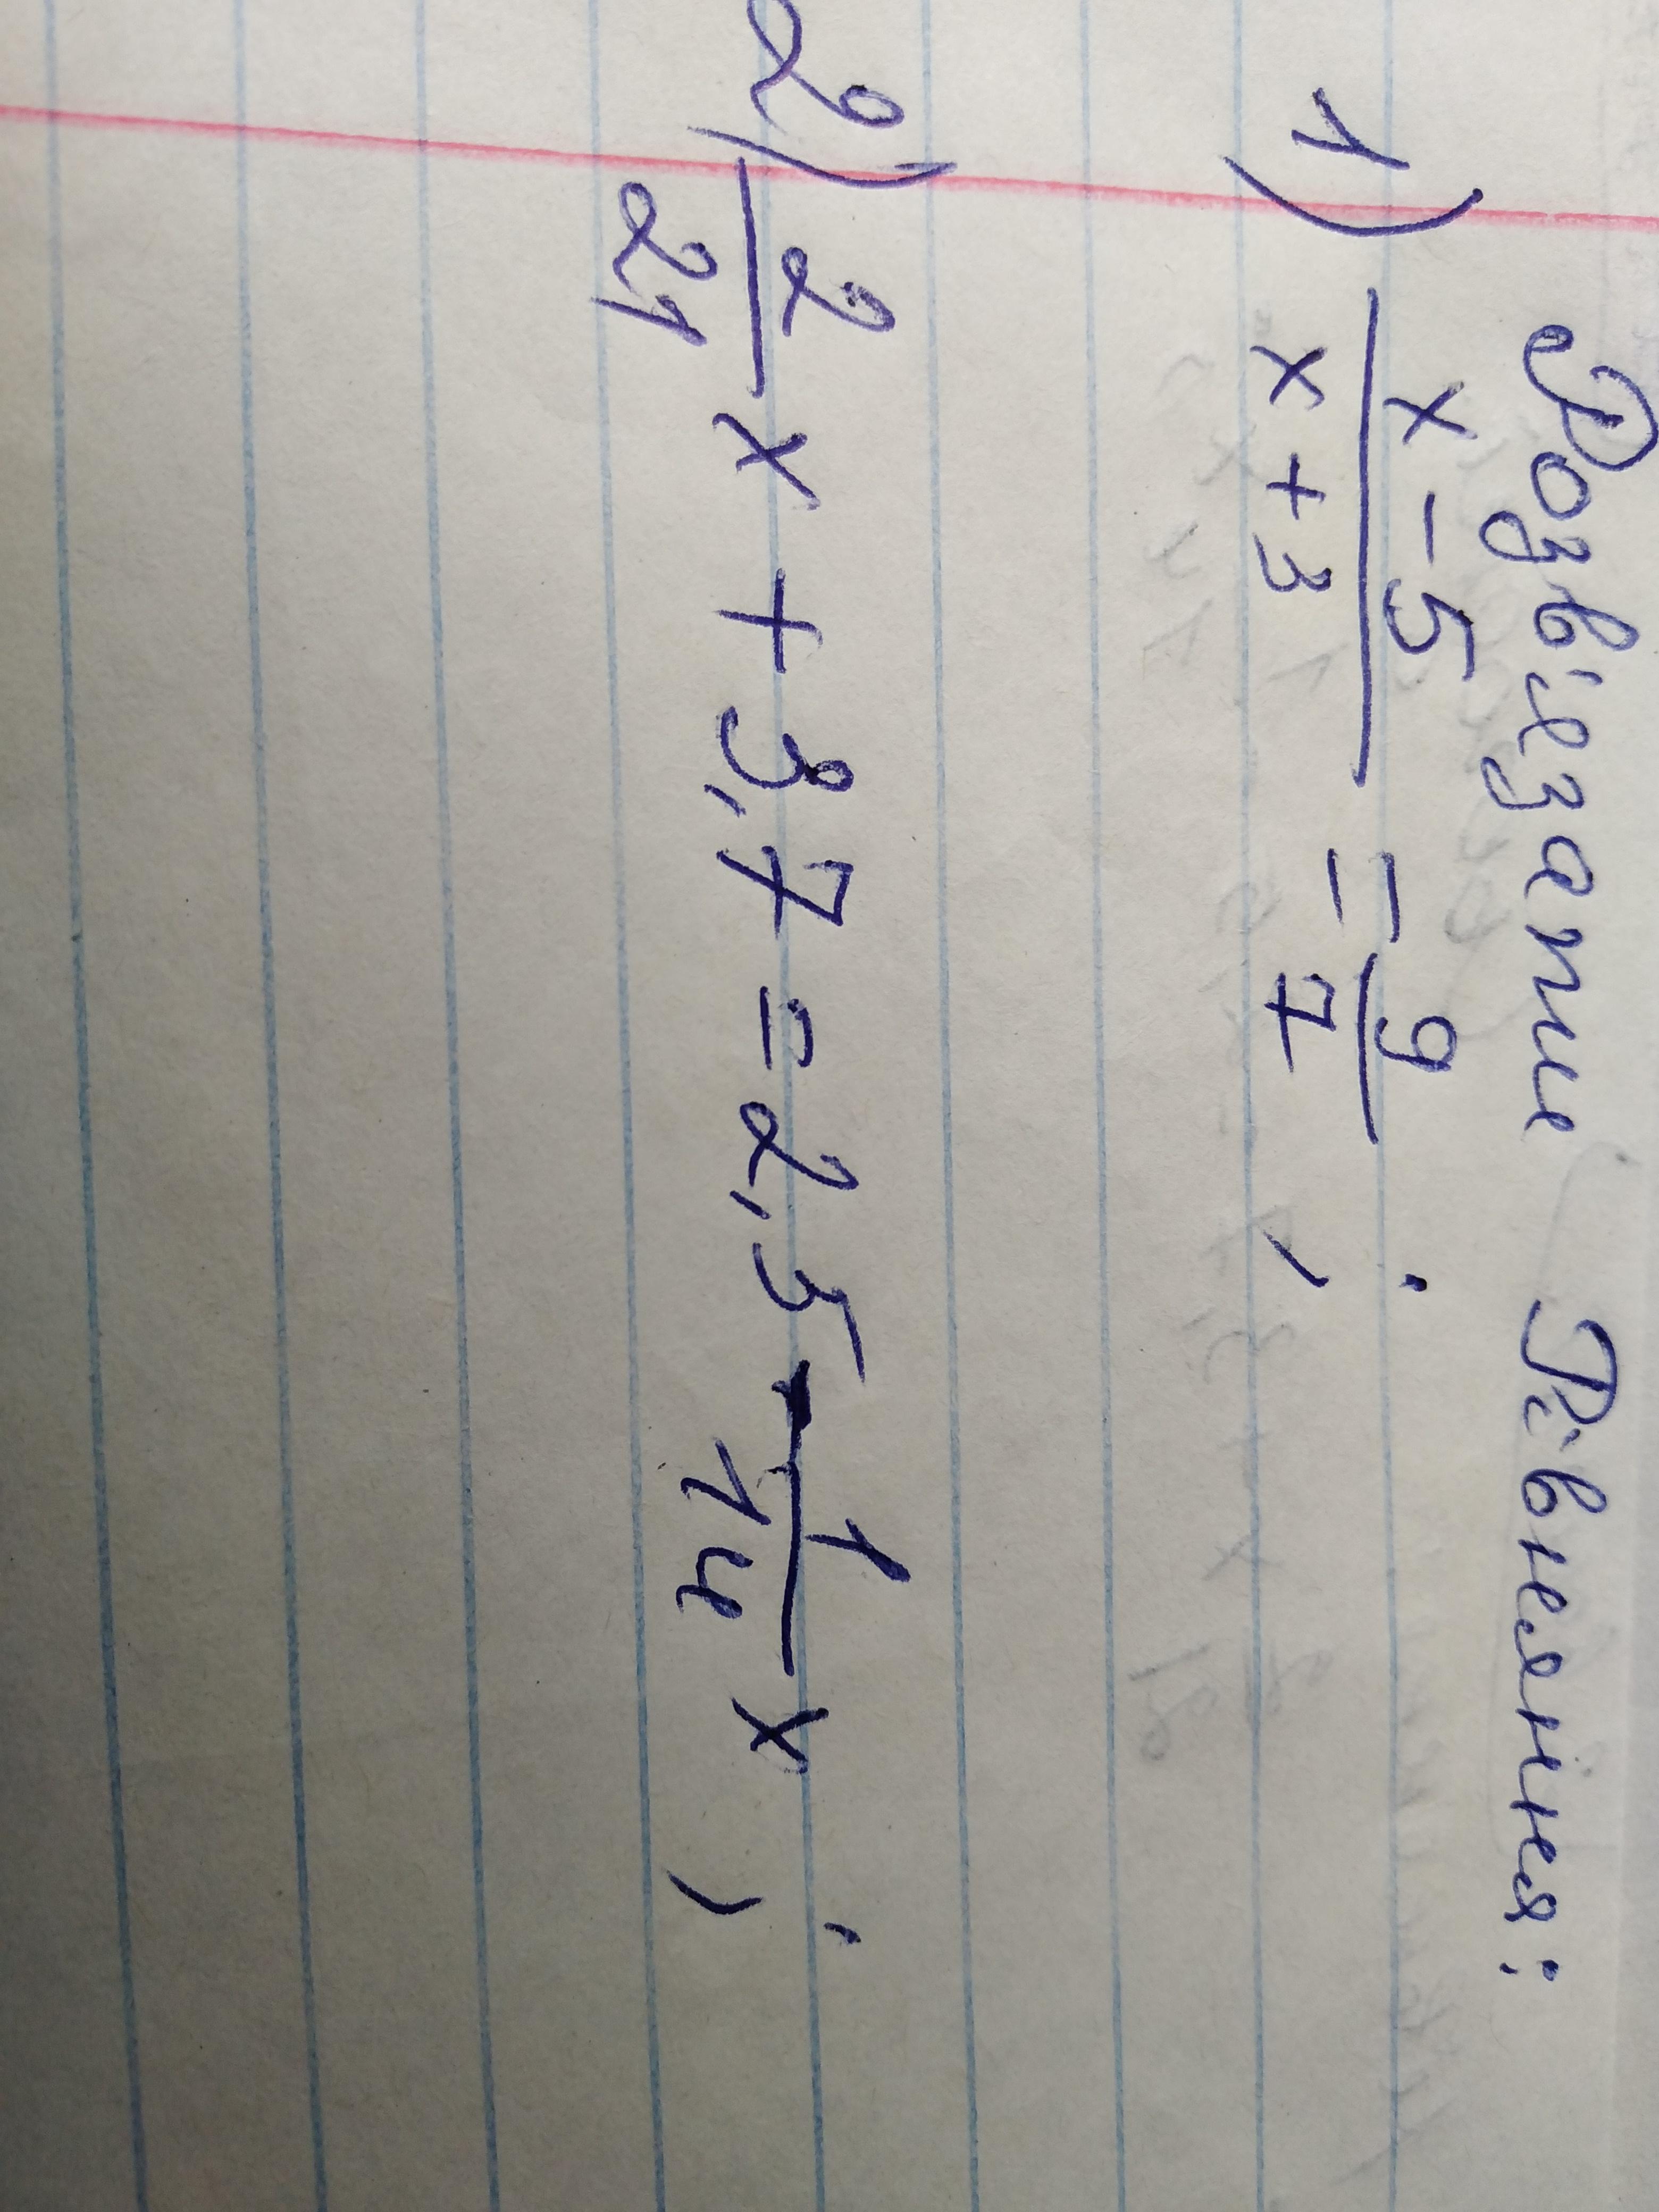 Розвіязати Рівняння:
1) x-5/x+3 = 9/7 ;
2) 2/21 x + 3,7 = 2,5 - 1/14 x ;